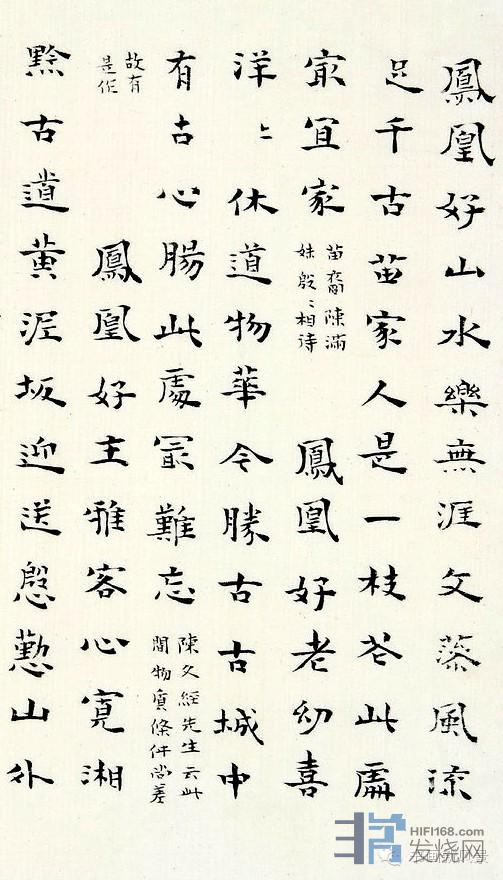 鳳凰好山水樂無涯文藻風流
足千古苗家人是一枝花此處
冣宜家
苗裔陳滿
妹殷〻相待
鳳凰好老幼喜
洋〻休道物華今勝古古城中
有古心腸此處冣難忘
陳文經先生云此
間物質條件尚差
故有
是作
鳳凰好主雅客心寬湘
黔古道黃泥坂迎送慇懃山外
HIFI168.com
发烧网